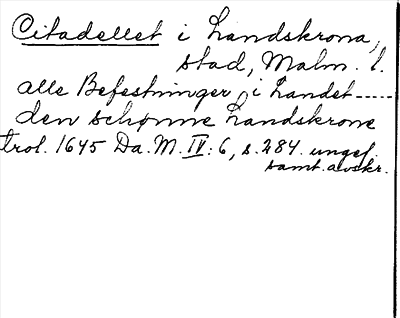 Citadellet i Landskrona,
stad, Malm. l.
alle Befestninger i Landet-----
den schønne Landskrone
trol. 1645 Da. M. IV: 6, s. 284. ungef.
samt. avskr.